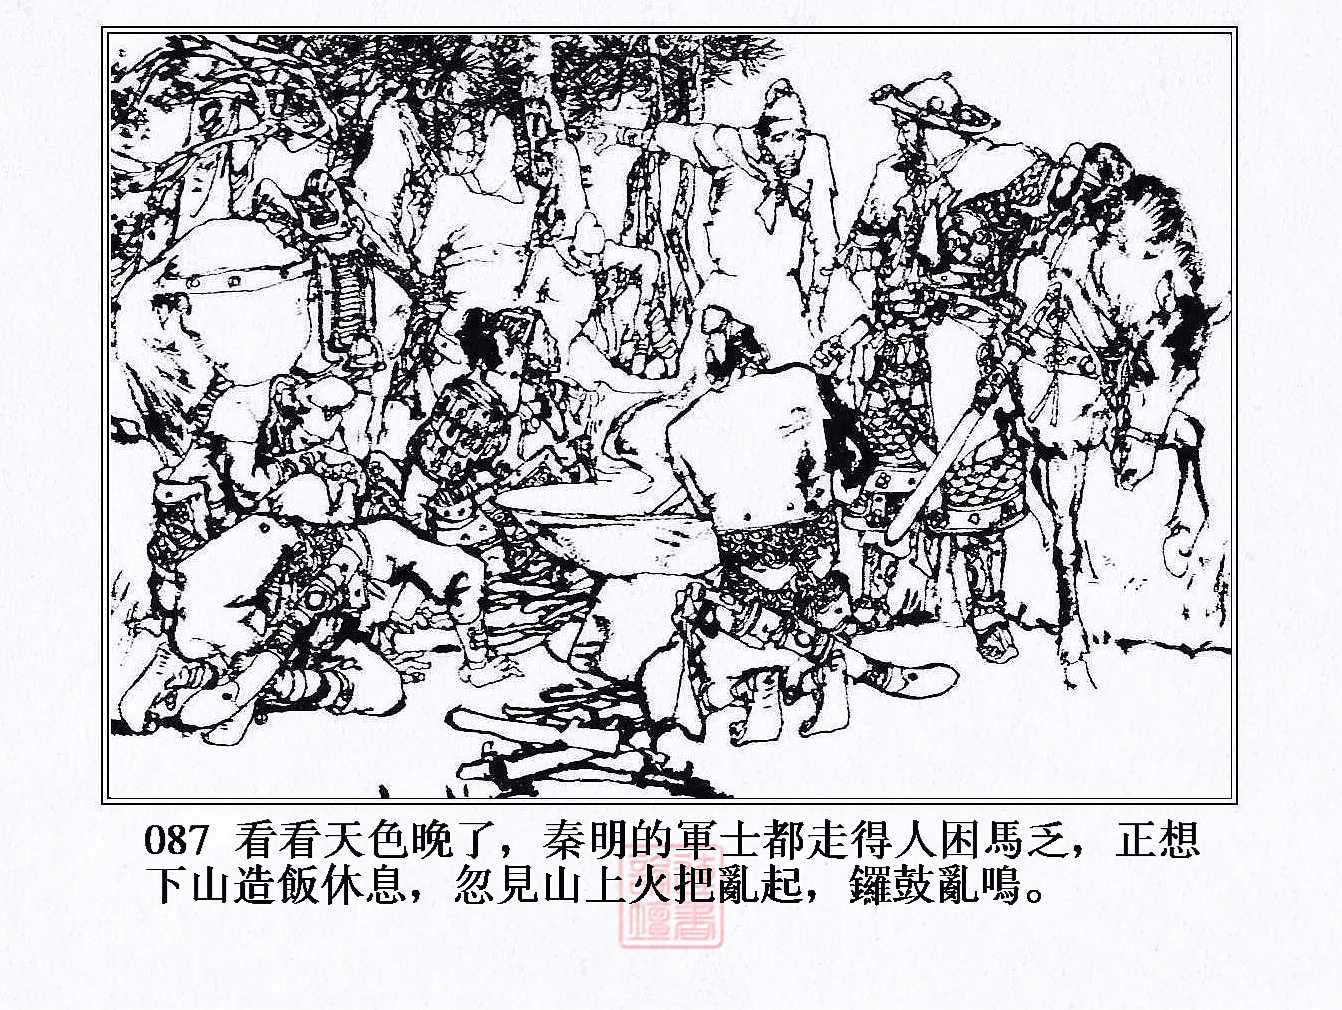 087 看看天色晚了，秦明的軍士都走得人困馬乏，正想
下山造飯休息，忽見山上火把亂起，鑼鼓亂鳴。